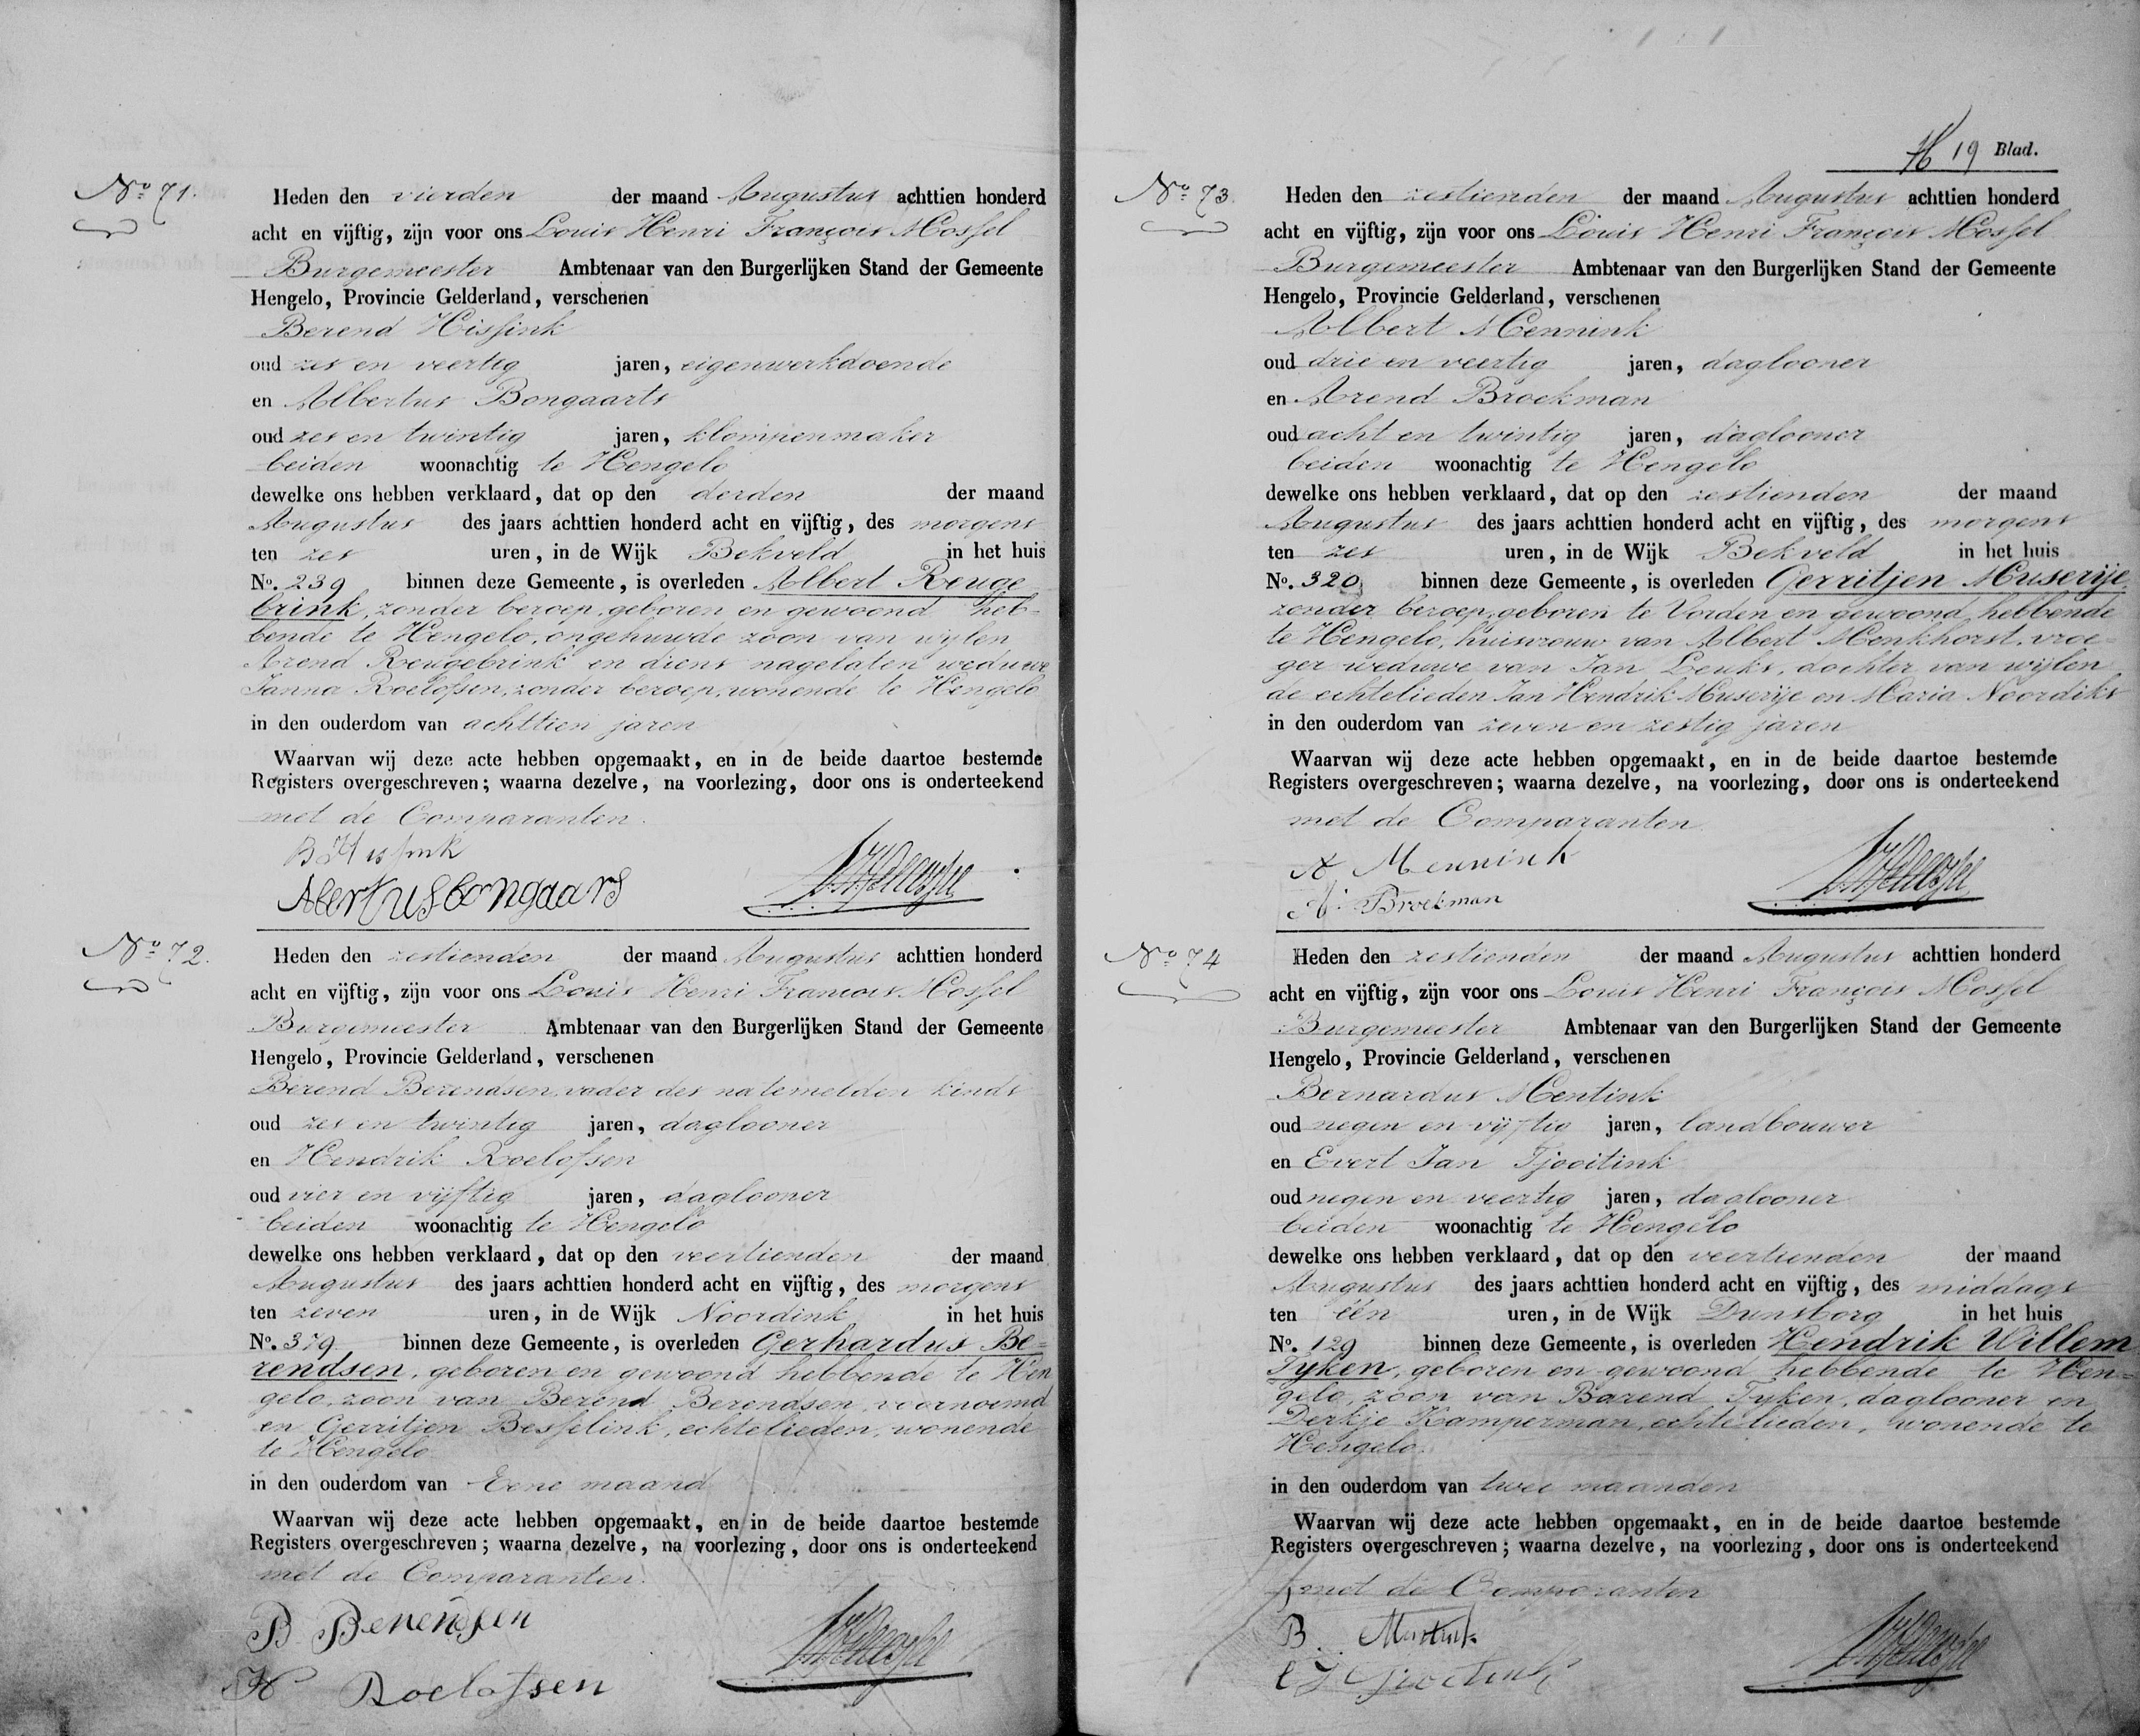 No 71.
Heden den vierden der maand Augustus achttien honderd
acht en vijftig, zijn voor ons Louis Henri François Mossel
Burgemeester Ambtenaar van den Burgerlijken Stand der Gemeente
Hengelo, Provincie Gelderland, verschenen
Berend Hissink
oud zes en veertig jaren, eigenwerkdoende
en Albertus Bongaarts
oud zes en twintig jaren, klompenmaker
beiden woonachtig te Hengelo
dewelke ons hebben verklaard, dat op den derden der maand
Augustus des jaars achttien honderd acht en vijftig, des morgens
ten zes uren, in de Wijk Bekveld in het huis
No. 239 binnen deze Gemeente, is overleden Albert Reuge-
brink, zonder beroep, geboren en gewoond heb-
bende te Hengelo, ongehuwde zoon van wijlen
Arend Reugebrink en diens nagelaten weduwe
Janna Roelofsen, zonder beroep, wonende te Hengelo
in den ouderdom van achttien jaren
Waarvan wij deze acte hebben opgemaakt, en in de beide daartoe bestemde
Registers overgeschreven; waarna dezelve, na voorlezing, door ons is onderteekend
met de Comparanten.
B Hissink
Albertus Bongaars
No 72.
Heden den zestienden der maand Augustus achttien honderd
acht en vijftig, zijn voor ons Louis Henri Francois Mossel
Burgemeester Ambtenaar van den Burgerlijken Stand der Gemeente
Hengelo, Provincie Gelderland, verschenen
Berend Berendsen, vader des natemelden kinds
oud zes en twintig jaren, daglooner
en Hendrik Roelofsen
oud vier en vijftig jaren, daglooner
beiden woonachtig te Hengelo
dewelke ons hebben verklaard, dat op den veertienden der maand
Augustus des jaars achttien honderd acht en vijftig, des morgens
ten zeven uren, in de Wijk Noordink in het huis
No. 379 binnen deze Gemeente, is overleden Gerhardus Be-
rendsen, geboren en gewoond hebbende te Hen
gelo, zoon van Berend Berendsen, voornoemd
en Gerritjen Besselink, echtelieden, wonende
te Hengelo
in den ouderdom van Eene maand
Waarvan wij deze acte hebben opgemaakt, en in de beide daartoe bestemde
Registers overgeschreven; waarna dezelve, na voorlezing, door ons is onderteekend
met de Comparanten.
B Berendsen
H Roelofsen
19 Blad.
No 73.
Heden den zestienden der maand Augustus achttien honderd
acht en vijftig, zijn voor ons Louis Henri François Mossel
Burgemeester Ambtenaar van den Burgerlijken Stand der Gemeente
Hengelo, Provincie Gelderland, verschenen
Albert Mennink
oud drie en veertig jaren, daglooner
en Arend Broekman
oud acht en twintig jaren, daglooner
beiden woonachtig te Hengelo
dewelke ons hebben verklaard, dat op den zestienden der maand
Augustus des jaars achttien honderd acht en vijftig, des morgens
ten zes uren, in de Wijk Bekveld in het huis
No. 320 binnen deze Gemeente, is overleden Gerritjen Muserije
zonder beroep, geboren te Vorden en gewoond hebbende
te Hengelo, huisvrouw van Albert Menkhorst, vroe-
ger weduwe van Jan Lenks, dochter van wijlen
de echtelieden Jan Hendrik Muserije en Maria Noordiks
in den ouderdom van zeven en zestig jaren
Waarvan wij deze acte hebben opgemaakt, en in de beide daartoe bestemde
Registers overgeschreven; waarna dezelve, na voorlezing, door ons is onderteekend
met de Comparanten
A Mennink
A. Broekman
No 74
Heden den zestienden der maand Augustus achttien honderd
acht en vijftig, zijn voor ons Louis Henri François Mossel
Burgemeester Ambtenaar van den Burgerlijken Stand der Gemeente
Hengelo, Provincie Gelderland, verschenen
Bernardus Mentink
oud negen en vijftig jaren, landbouwer
en Evert Jan Tjooitink
oud negen en veertig jaren, daglooner
beiden woonachtig te Hengelo
dewelke ons hebben verklaard, dat op den veertienden der maand
Augustus des jaars achttien honderd acht en vijftig, des middags
ten één uren, in de Wijk Dunsborg in het huis
No. 129 binnen deze Gemeente, is overleden Hendrik Willem
Tyken, geboren en gewoond hebbende te Hen-
gelo, zoon van Barend Tyken, daglooner en
Derkje Kamperman, echtelieden, wonende te
Hengelo.
in den ouderdom van twee maanden
Waarvan wij deze acte hebben opgemaakt, en in de beide daartoe bestemde
Registers overgeschreven; waarna dezelve, na voorlezing, door ons is onderteekend
met de Comparanten
B. Mentink